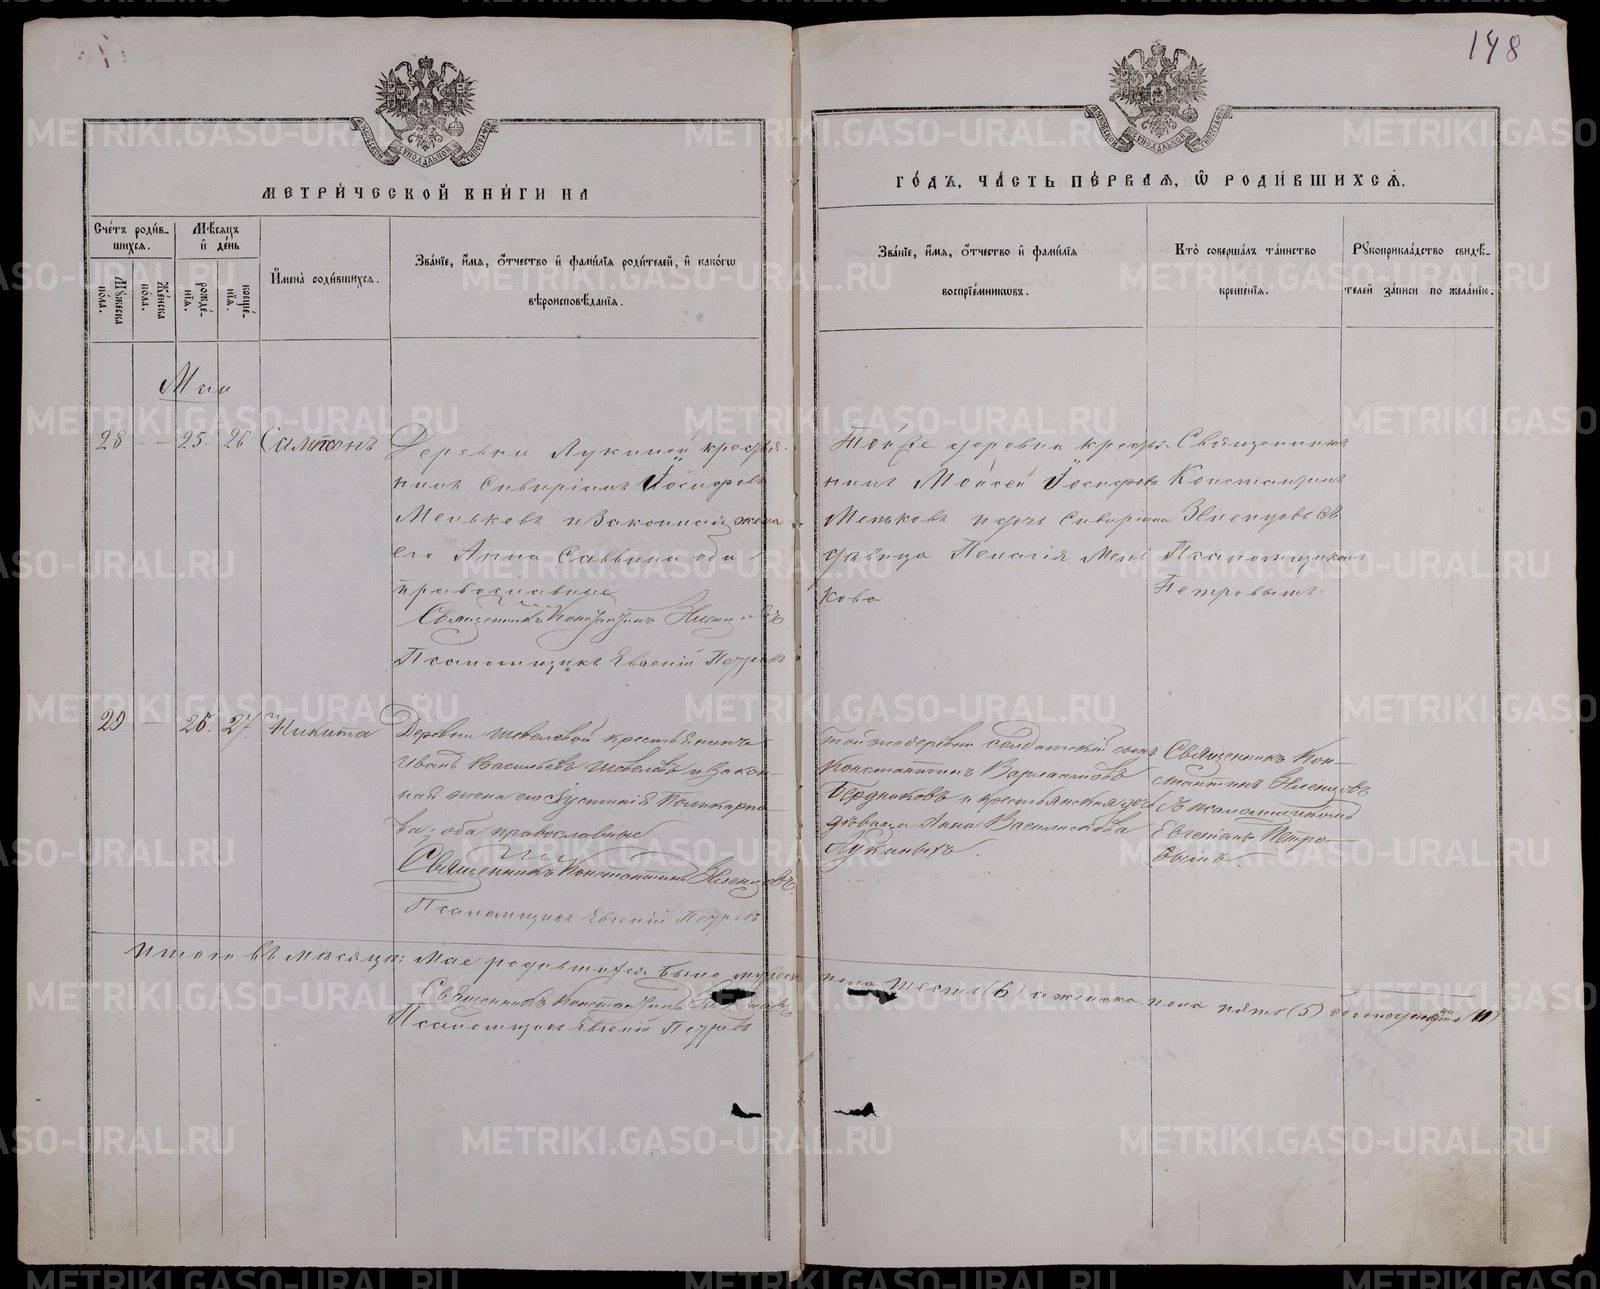 148
МЕТРИ́ЧЕСКОЙ КНИ́ГИ НА
ГО́ДЪ, ЧА́СТЬ ПЕ́РВАЯ, Ѡ҆ РОДИ́ВШИХСЯ.
Сче́тъ роди́в-
шихся.
Мѣ́сяцъ
и҆ де́нь
Мꙋ́жеска по́ла.
Же́нска по́ла.
рожде́-
нїя.
креще́-
нїя.
И҆мена̀ роди́вшихся.
Зва́нїе, и҆́мя, ѻ҆́тчество и҆ фами́лїя роди́телей, и҆ како́гѡ
вѣроисповѣ́данїя.
Зва́нїе, и҆́мя, ѻ҆́тчество и҆ фами́лїя
воспрїе́мникѡвъ.
Кто̀ соверша́лъ та́инство
креще́нїя.
Рꙋкоприкла́дство свидѣ́-
телей за́писи по жела́нїю.
Май
28 — — 25. 26 Сампсонъ
Деревни Лукиной крестья-
нинъ Сивиріанъ Іосифовъ
Меньковъ и законная жена
его Анна Саввина оба
православные
Священникъ Константинъ
Псаломщикъ Евгеній Петровъ
Той же деревни крестья-
нинъ Моисей Іосифовъ
Меньковъ и дочь Сивиріана
дѣвица Пелагія Мень-
кова
Священникъ
Константинъ
съ
Псаломщикомъ
Петровымъ
29 — 25. 27. Никита
Деревни Шевелевой крестьянинъ
Иванъ Васильевъ Шевелевъ и закон-
ная жена его Іустинія Поликарпо-
ва, оба православные
Священникъ Константинъ
Псаломщикъ Евгеній Петровъ
той же деревни солдатскій сынъ
Константинъ Варлаамовъ
Бердниковъ и крестьянская дочь
дѣвица Анна Василискова
Лукиныхъ.
Священникъ Кон-
стантинъ
съ псаломщикомъ
Евгеніемъ Петро-
вымъ.
Итого въ мѣсяцѣ Маѣ родившихся было мужеска пола шесть (6) и женска пола пять (5) обоего одинадцать (11)
Священникъ Константинъ
Псаломщикъ Евгеній Петровъ
METRIKI.GASO-URAL.RU